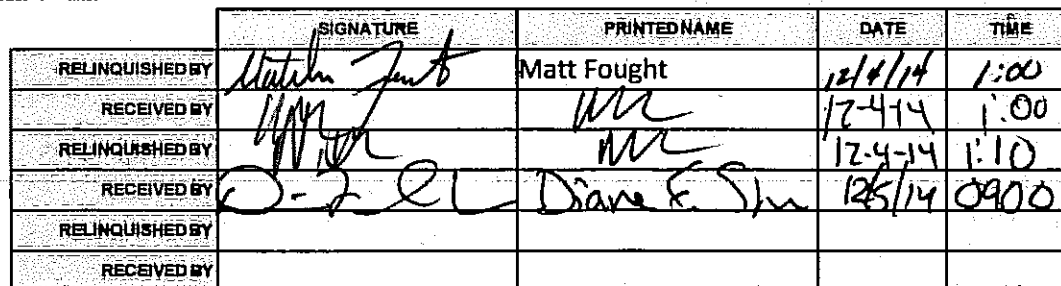 SIGNATURE PRINTED NAME DATE TIME
RELINQUISHED BY Matt Fought 12/4/14 1:00
RECEIVED BY 12-4-14 1:00
RELINQUISHED BY 12-4-14 1:10
RECEIVED BY Diane F. 12/5/14 0900
RELINQUISHED BY
RECEIVED BY